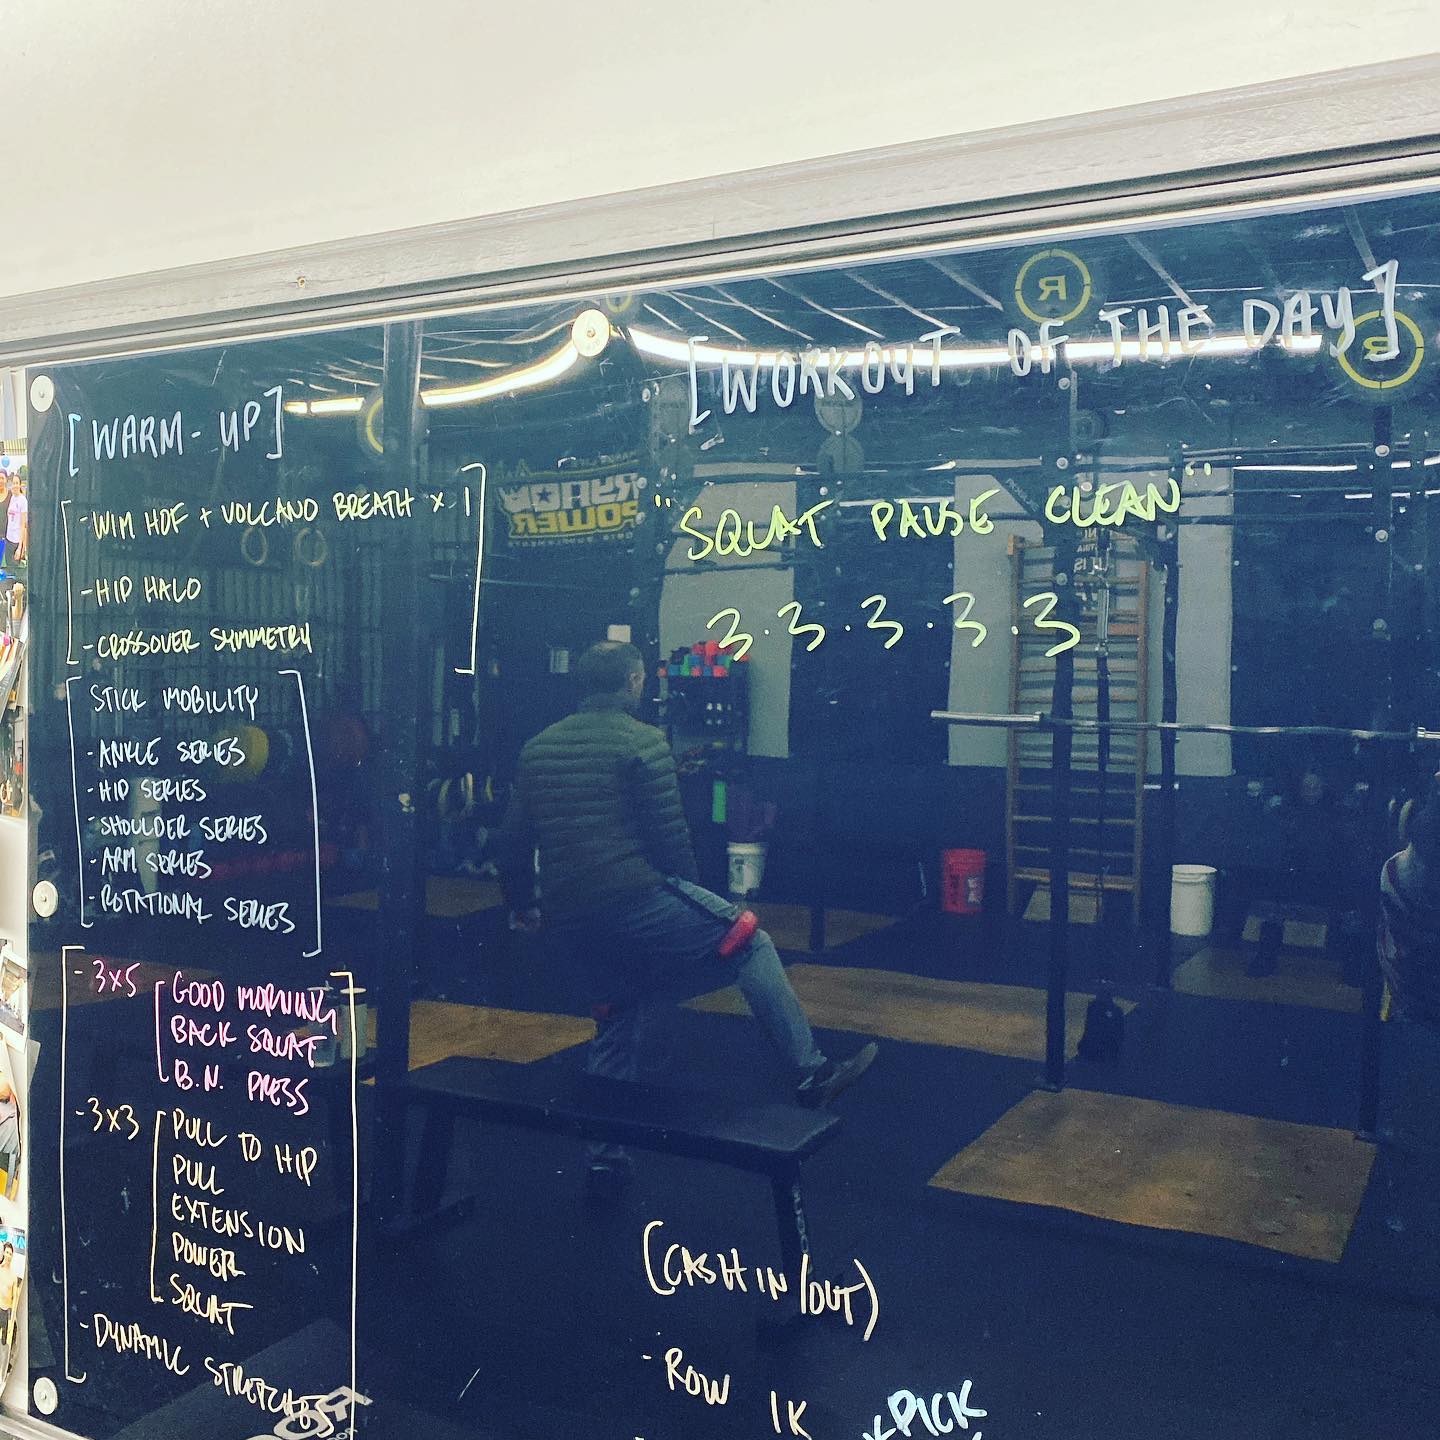 [WARM-UP]
-WIM HOF + VOLCANO BREATH x 1
-HIP HALO
-CROSSOVER SYMMETRY
STICK MOBILITY
-ANKLE SERIES
-HIP SERIES
-SHOULDER SERIES
-ARM SERIES
-ROTATIONAL SERIES
-3x5 [GOOD MORNING
BACK SQUAT
B.N. PRESS
-3x3 [PULL TO HIP
PULL
EXTENSION
POWER
SQUAT
-DYNAMIC STRETCHES
[WORKOUT OF THE DAY]
"SQUAT PAUSE CLEAN"
3.3.3.3.3
(CASH IN/OUT)
-ROW 1K
*PICK
RYNO
POWER
R
R